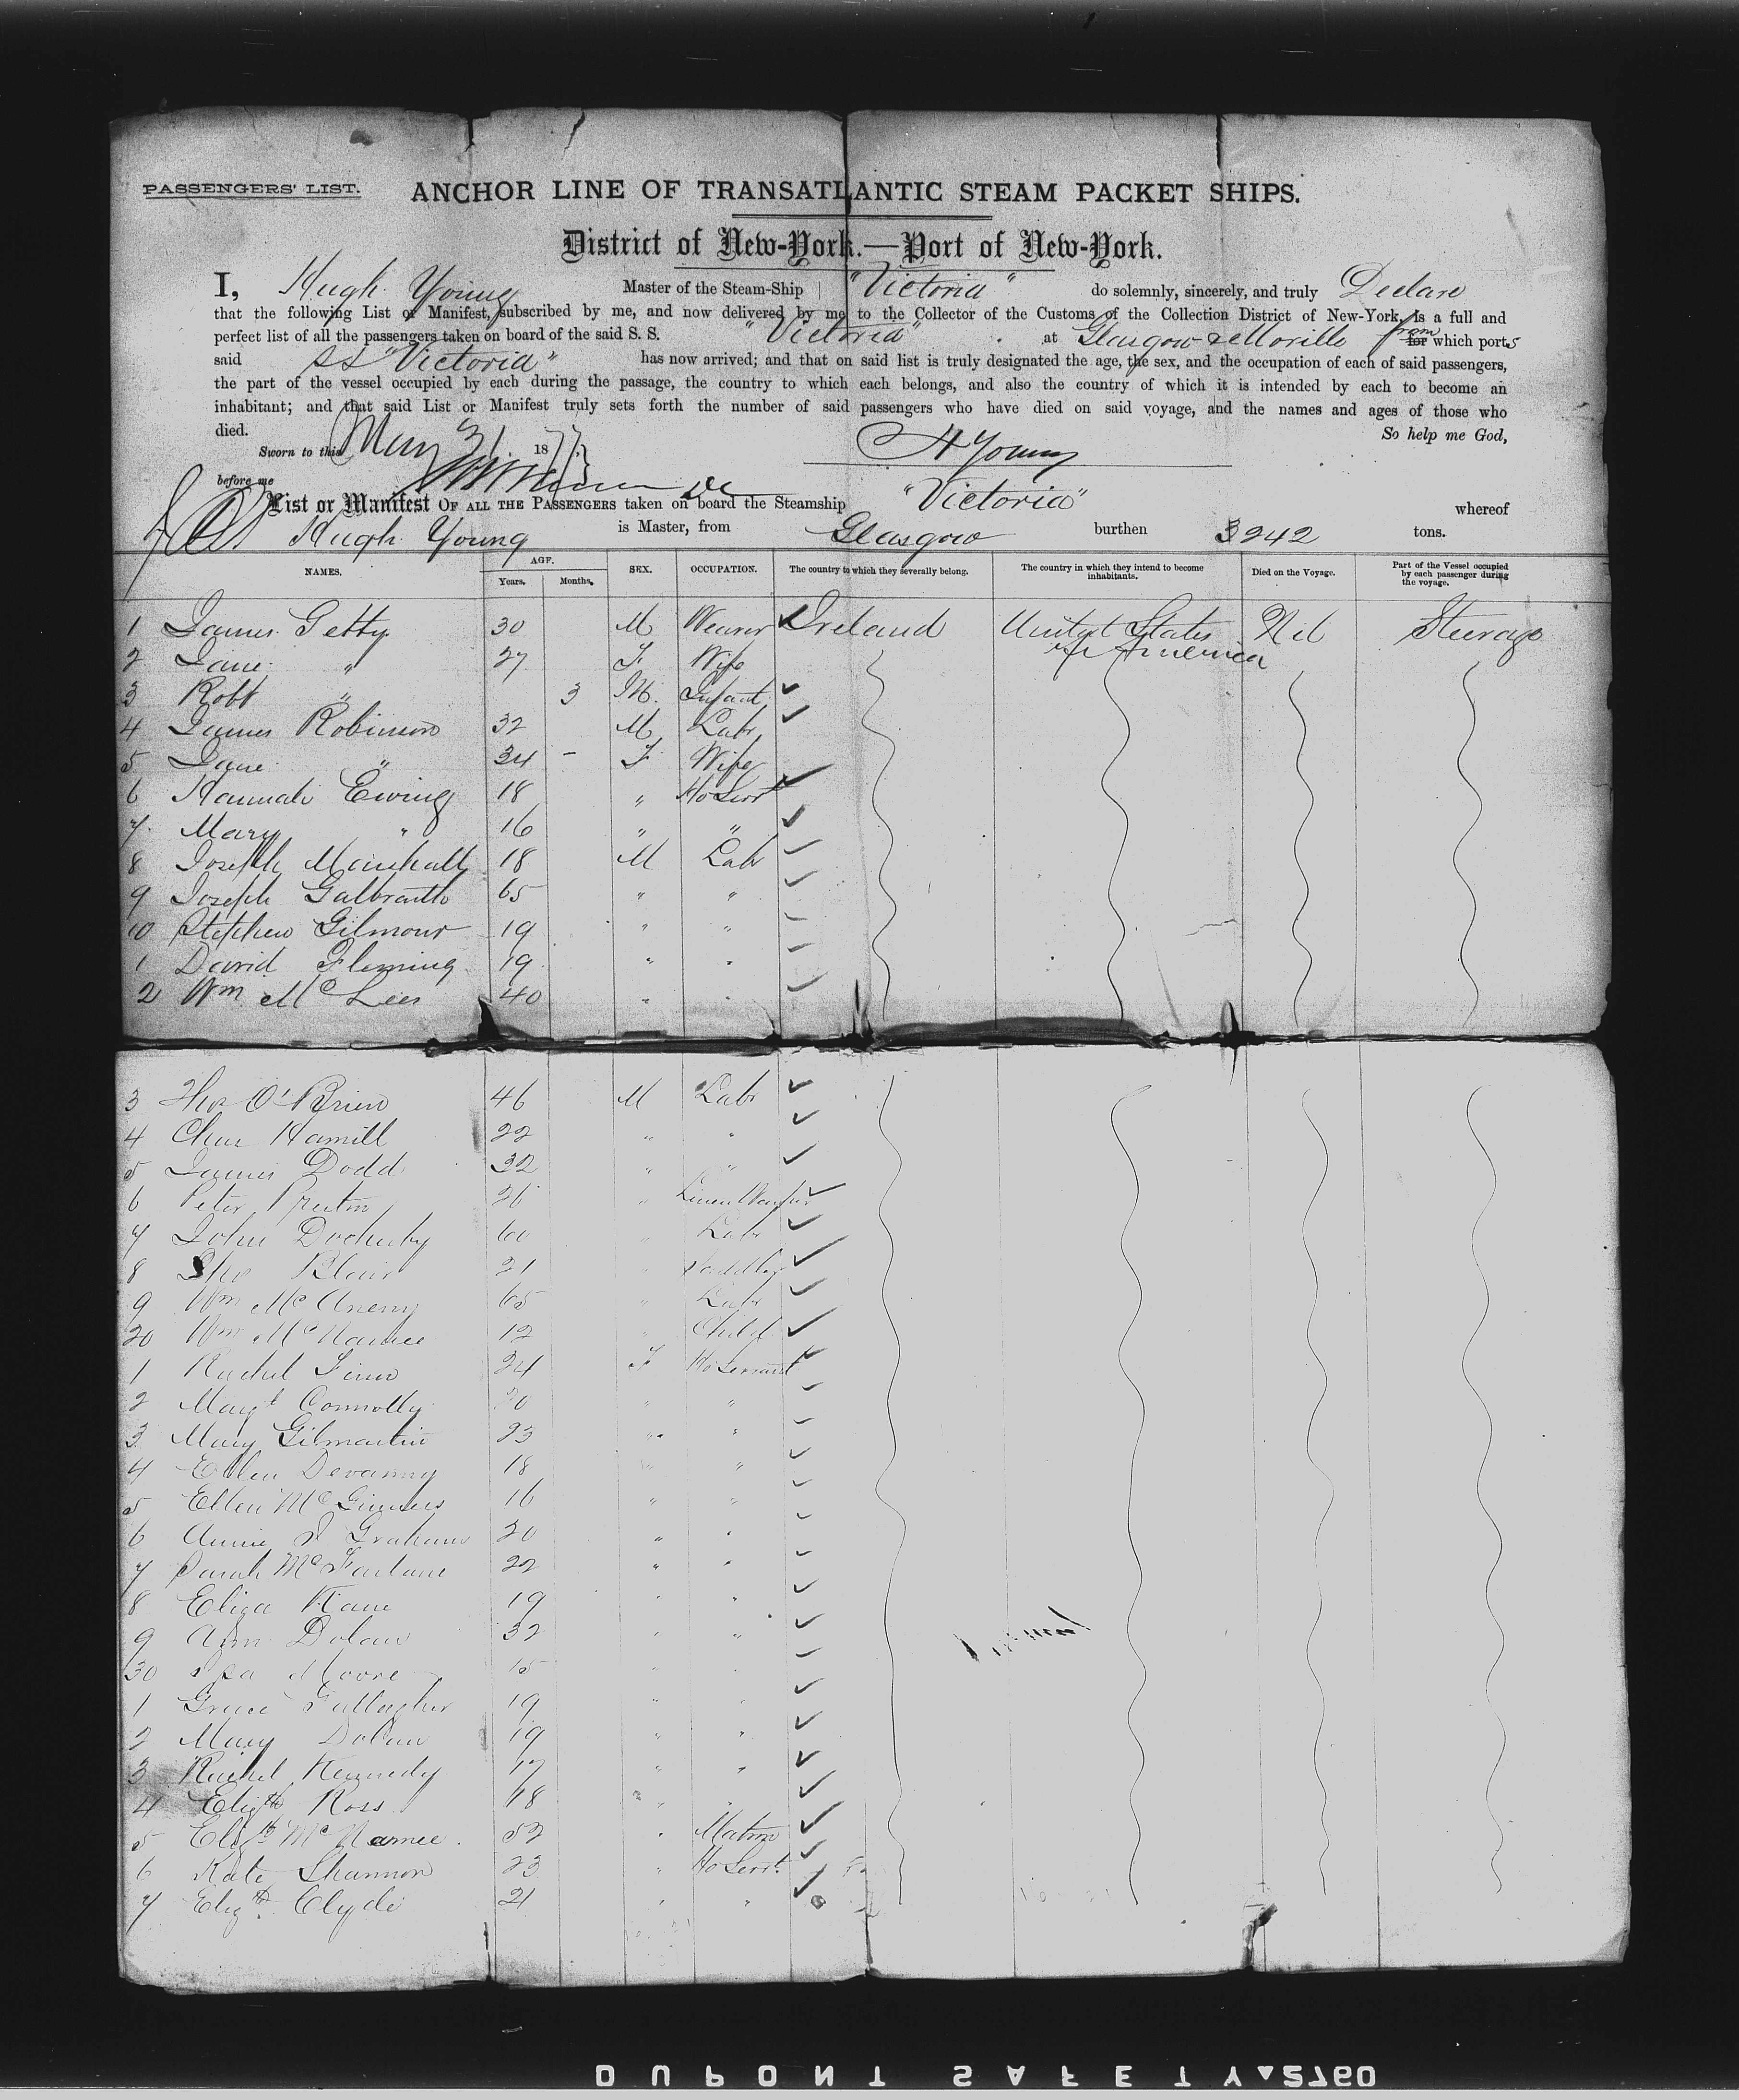 PASSENGERS' LIST. ANCHOR LINE OF TRANSATLANTIC STEAM PACKET SHIPS.
District of New-York.—Port of New-York.
I, Hugh Young Master of the Steam-Ship "Victoria" do solemnly, sincerely, and truly Declare
that the following List or Manifest, subscribed by me, and now delivered by me to the Collector of the Customs of the Collection District of New-York, is a full and
perfect list of all the passengers taken on board of the said S. S. "Victoria" at Glasgow & Moville from for which ports
said SS "Victoria" has now arrived; and that on said list is truly designated the age, the sex, and the occupation of each of said passengers,
the part of the vessel occupied by each during the passage, the country to which each belongs, and also the country of which it is intended by each to become an
inhabitant; and that said List or Manifest truly sets forth the number of said passengers who have died on said voyage, and the names and ages of those who
died. So help me God,
Sworn to this May 31 1877 H Young
before me
List or Manifest OF ALL THE PASSENGERS taken on board the Steamship "Victoria" whereof
Hugh Young is Master, from Glasgow burthen 3242 tons.
NAMES. AGE. Years. Months. SEX. OCCUPATION. The country to which they severally belong. The country in which they intend to become inhabitants. Died on the Voyage. Part of the Vessel occupied by each passenger during the voyage.
1 James Getty 30 M Weaver Ireland United States of America Nil Steerage
2 Jane " 27 F Wife
3 Robt " 3 M Infant
4 James Robinson 32 M Labr
5 Jane " 34 - F Wife
6 Hannah Ewing 18 " Ho Servt
7 Mary " 16 " "
8 Joseph Marshall 18 M Labr
9 Joseph Galbraith 65 " "
10 Stephen Gilmour 19 " "
1 David Fleming 19 " "
2 Wm McLees 40 " "
3 Thos O'Brien 46 M Labr
4 Chas Hamill 22 " "
5 James Dodd 32 " "
6 Peter 26 " Linen
7 John Docherty 60 " Labr
8 Thos Blair 21 " Saddler
9 Wm McAneny 65 " Labr
20 Wm McNamee 12 " Child
1 Rachel Finn 24 F Ho Servant
2 Margt Connolly 20 " "
3 Mary Gilmartin 23 " "
4 Ellen Devanny 18 " "
5 Ellen McGinness 16 " "
6 Annie J Graham 20 " "
7 Sarah McFarlane 22 " "
8 Eliza Kane 19 " "
9 Ann Dolan 32 " "
30 Moore 15 " "
1 Grace Gallagher 19 " "
2 Mary Dolan 19 " "
3 Rachel Kennedy 17 " "
4 Elizth Ross 18 " "
5 Elizth McNamee 52 " Matron
6 Kate Shannon 23 " Ho Servt.
7 Elizth Clyde 21 " "
DUPONT SAFETY 2760